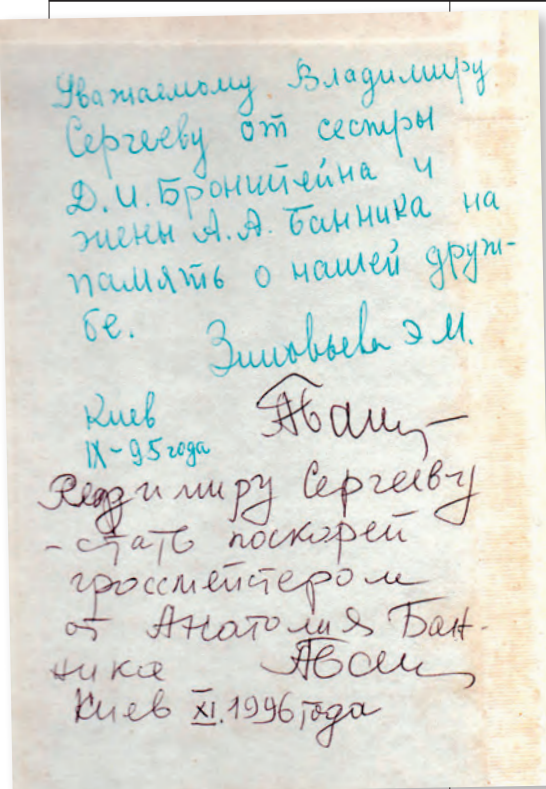 Уважаемому Владимиру
Сергееву от сестры
Д.И.Бронштейна и
жены А.А.Банника на
память о нашей друж-
бе. Зиновьева Э М.
Киев
IX-95 года
Сергееву
- стать поскорей
гроссмейстером
от Анатолия Бан-
ника
Киев XI.1996 года